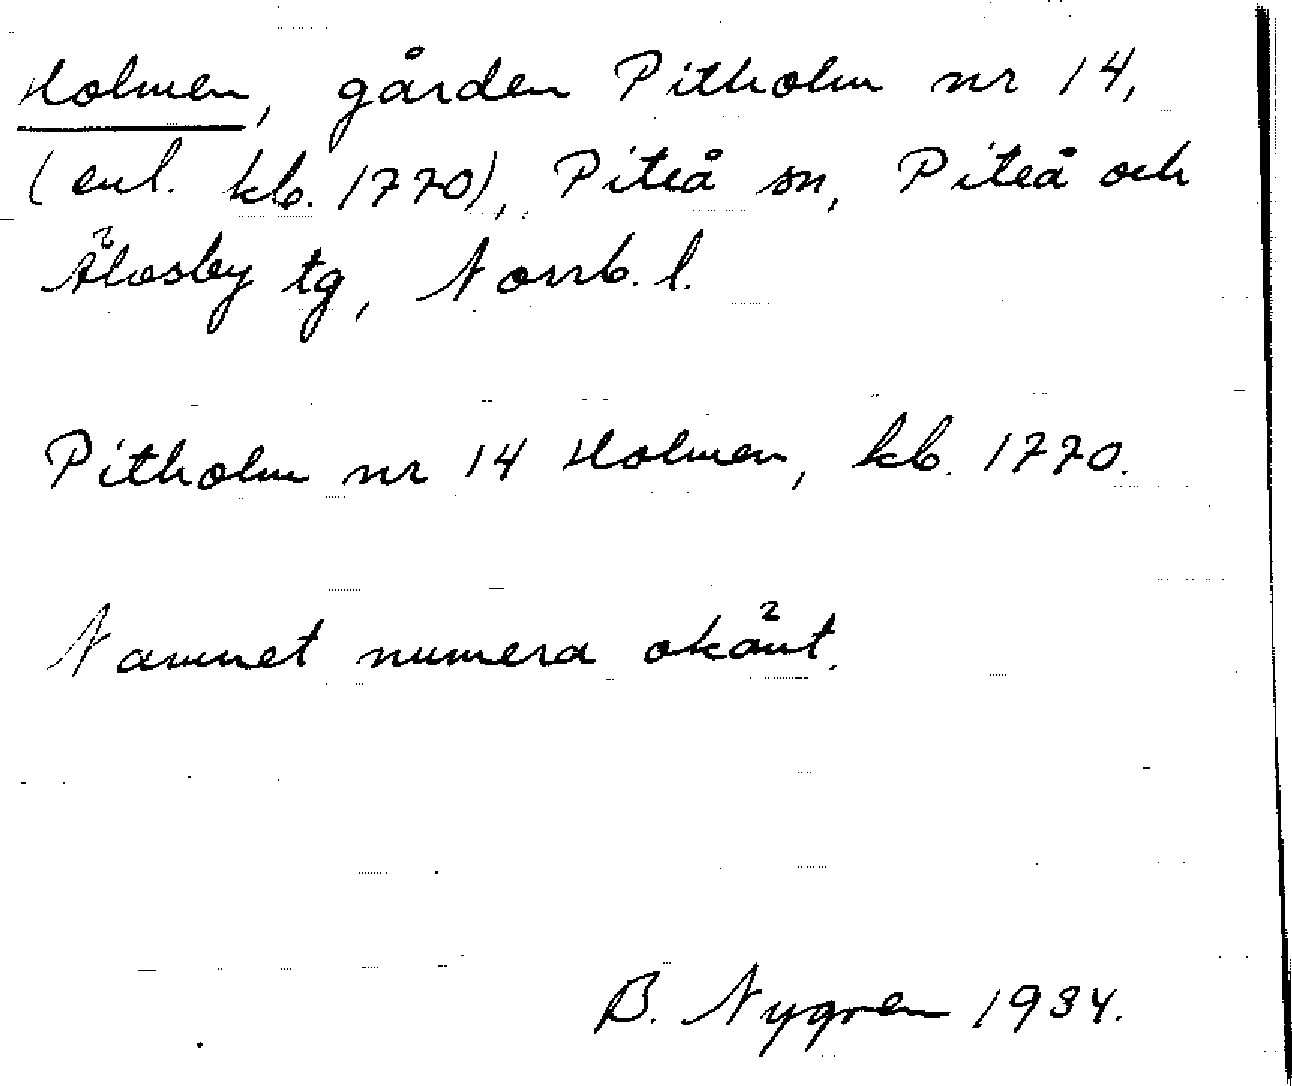 Holmen, gården Pitholm nr 14,
(enl. kb. 1770), Piteå sn, Piteå och
Älvsby tg, Norrb. l.
Pitholm nr 14 Holmen, kb. 1770.
Namnet numera okänt.
B. Nygren 1934.